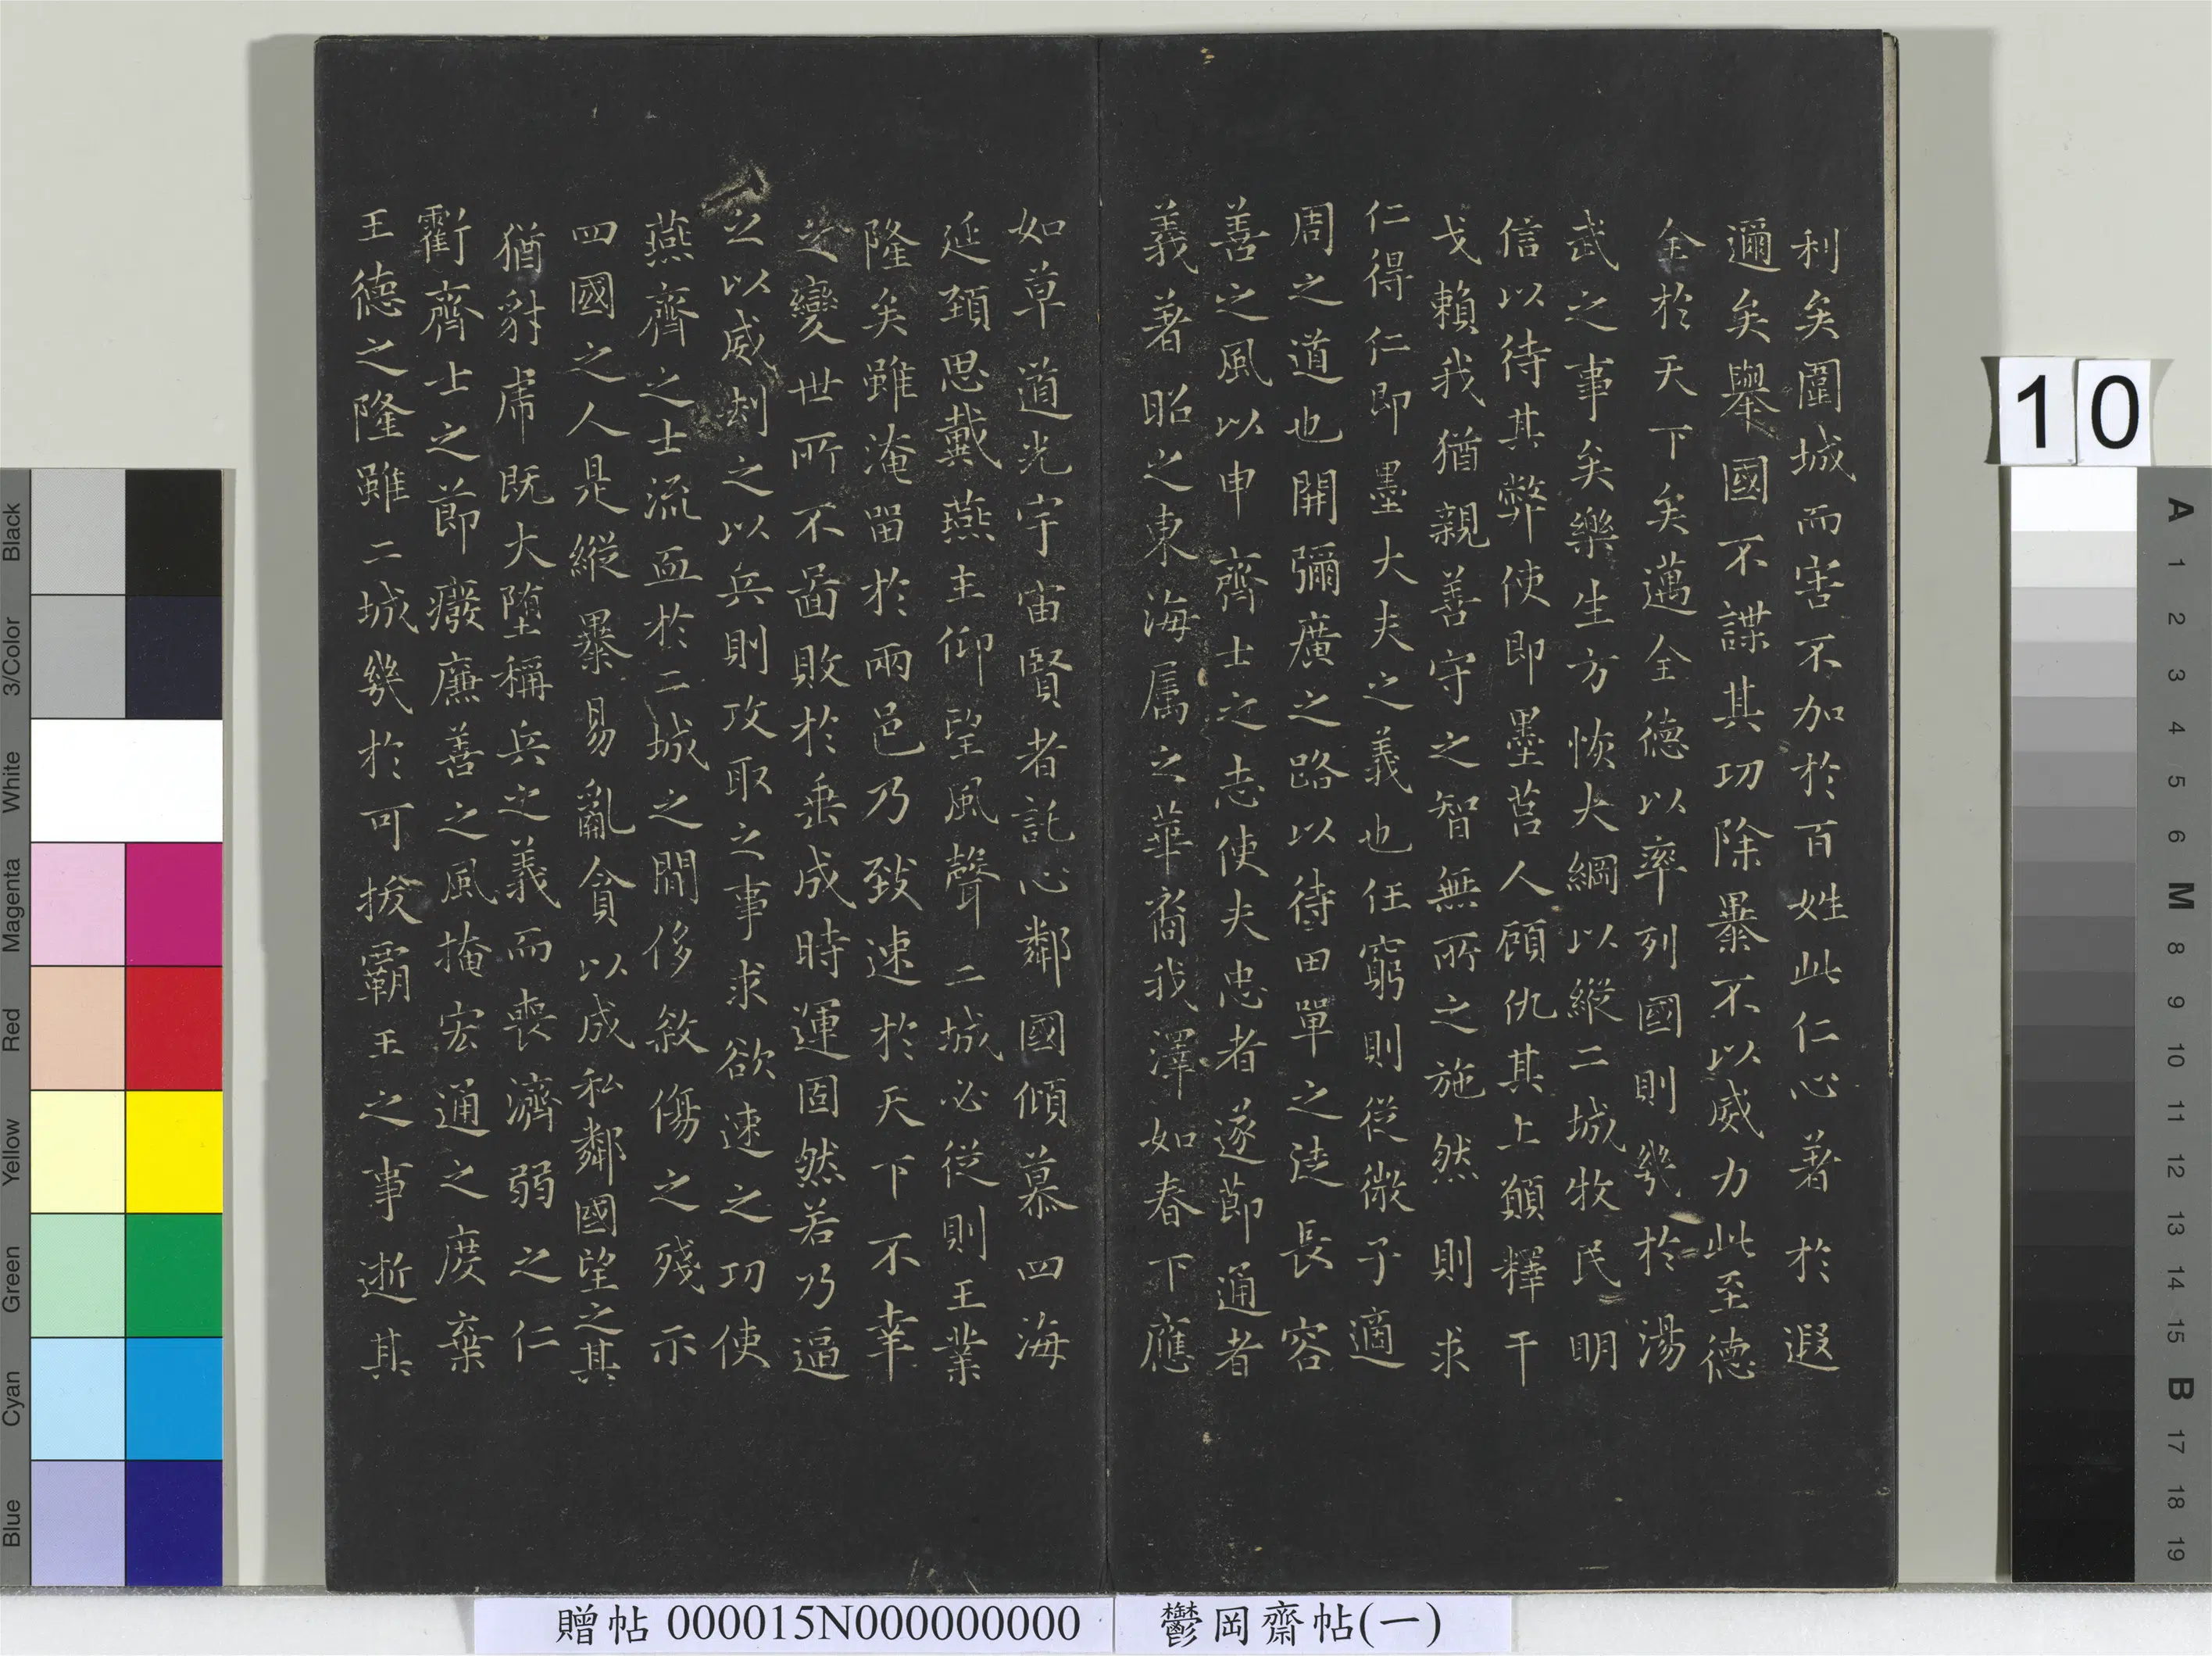 利矣圍城而害不加於百姓此仁心著於遐
邇矣舉國不謀其功除暴不以威力此至德
全於天下矣邁全德以率列國則幾於湯
武之事矣樂生方恢大綱以縱二城牧民明
信以待其弊使即墨莒人顧仇其上願釋干
戈賴我猶親善守之智無所之施然則求
仁得仁即墨大夫之義也任窮則從微子適
周之道也開彌廣之路以待田單之徒長容
善之風以申齊士之志使夫忠者遂節通者
義著昭之東海属之華裔我澤如春下應
如草道光宇宙賢者託心鄰國傾慕四海
延頚思戴燕主仰望風聲二城必從則王業
隆矣雖淹留於兩邑乃致速於天下不幸
之變世所不啚敗於垂成時運固然若乃逼
之以威刧之以兵則攻取之事求欲速之功使
燕齊之士流血於二城之間侈敘傷之殘示
四國之人是縱暴易亂貪以成私鄰國望之其
猶豺虎既大堕稱兵之義而喪濟弱之仁
虧齊士之節癈廉善之風掩宏通之度棄
王德之隆雖二城幾於可拔霸王之事逝其
贈帖 000015N000000000
鬱岡齋帖(一)
10
Black
3/Color
White
Magenta
Red
Yellow
Green
Cyan
Blue
A
1
2
3
4
5
6
M
8
9
10
11
12
13
14
15
B
17
18
19